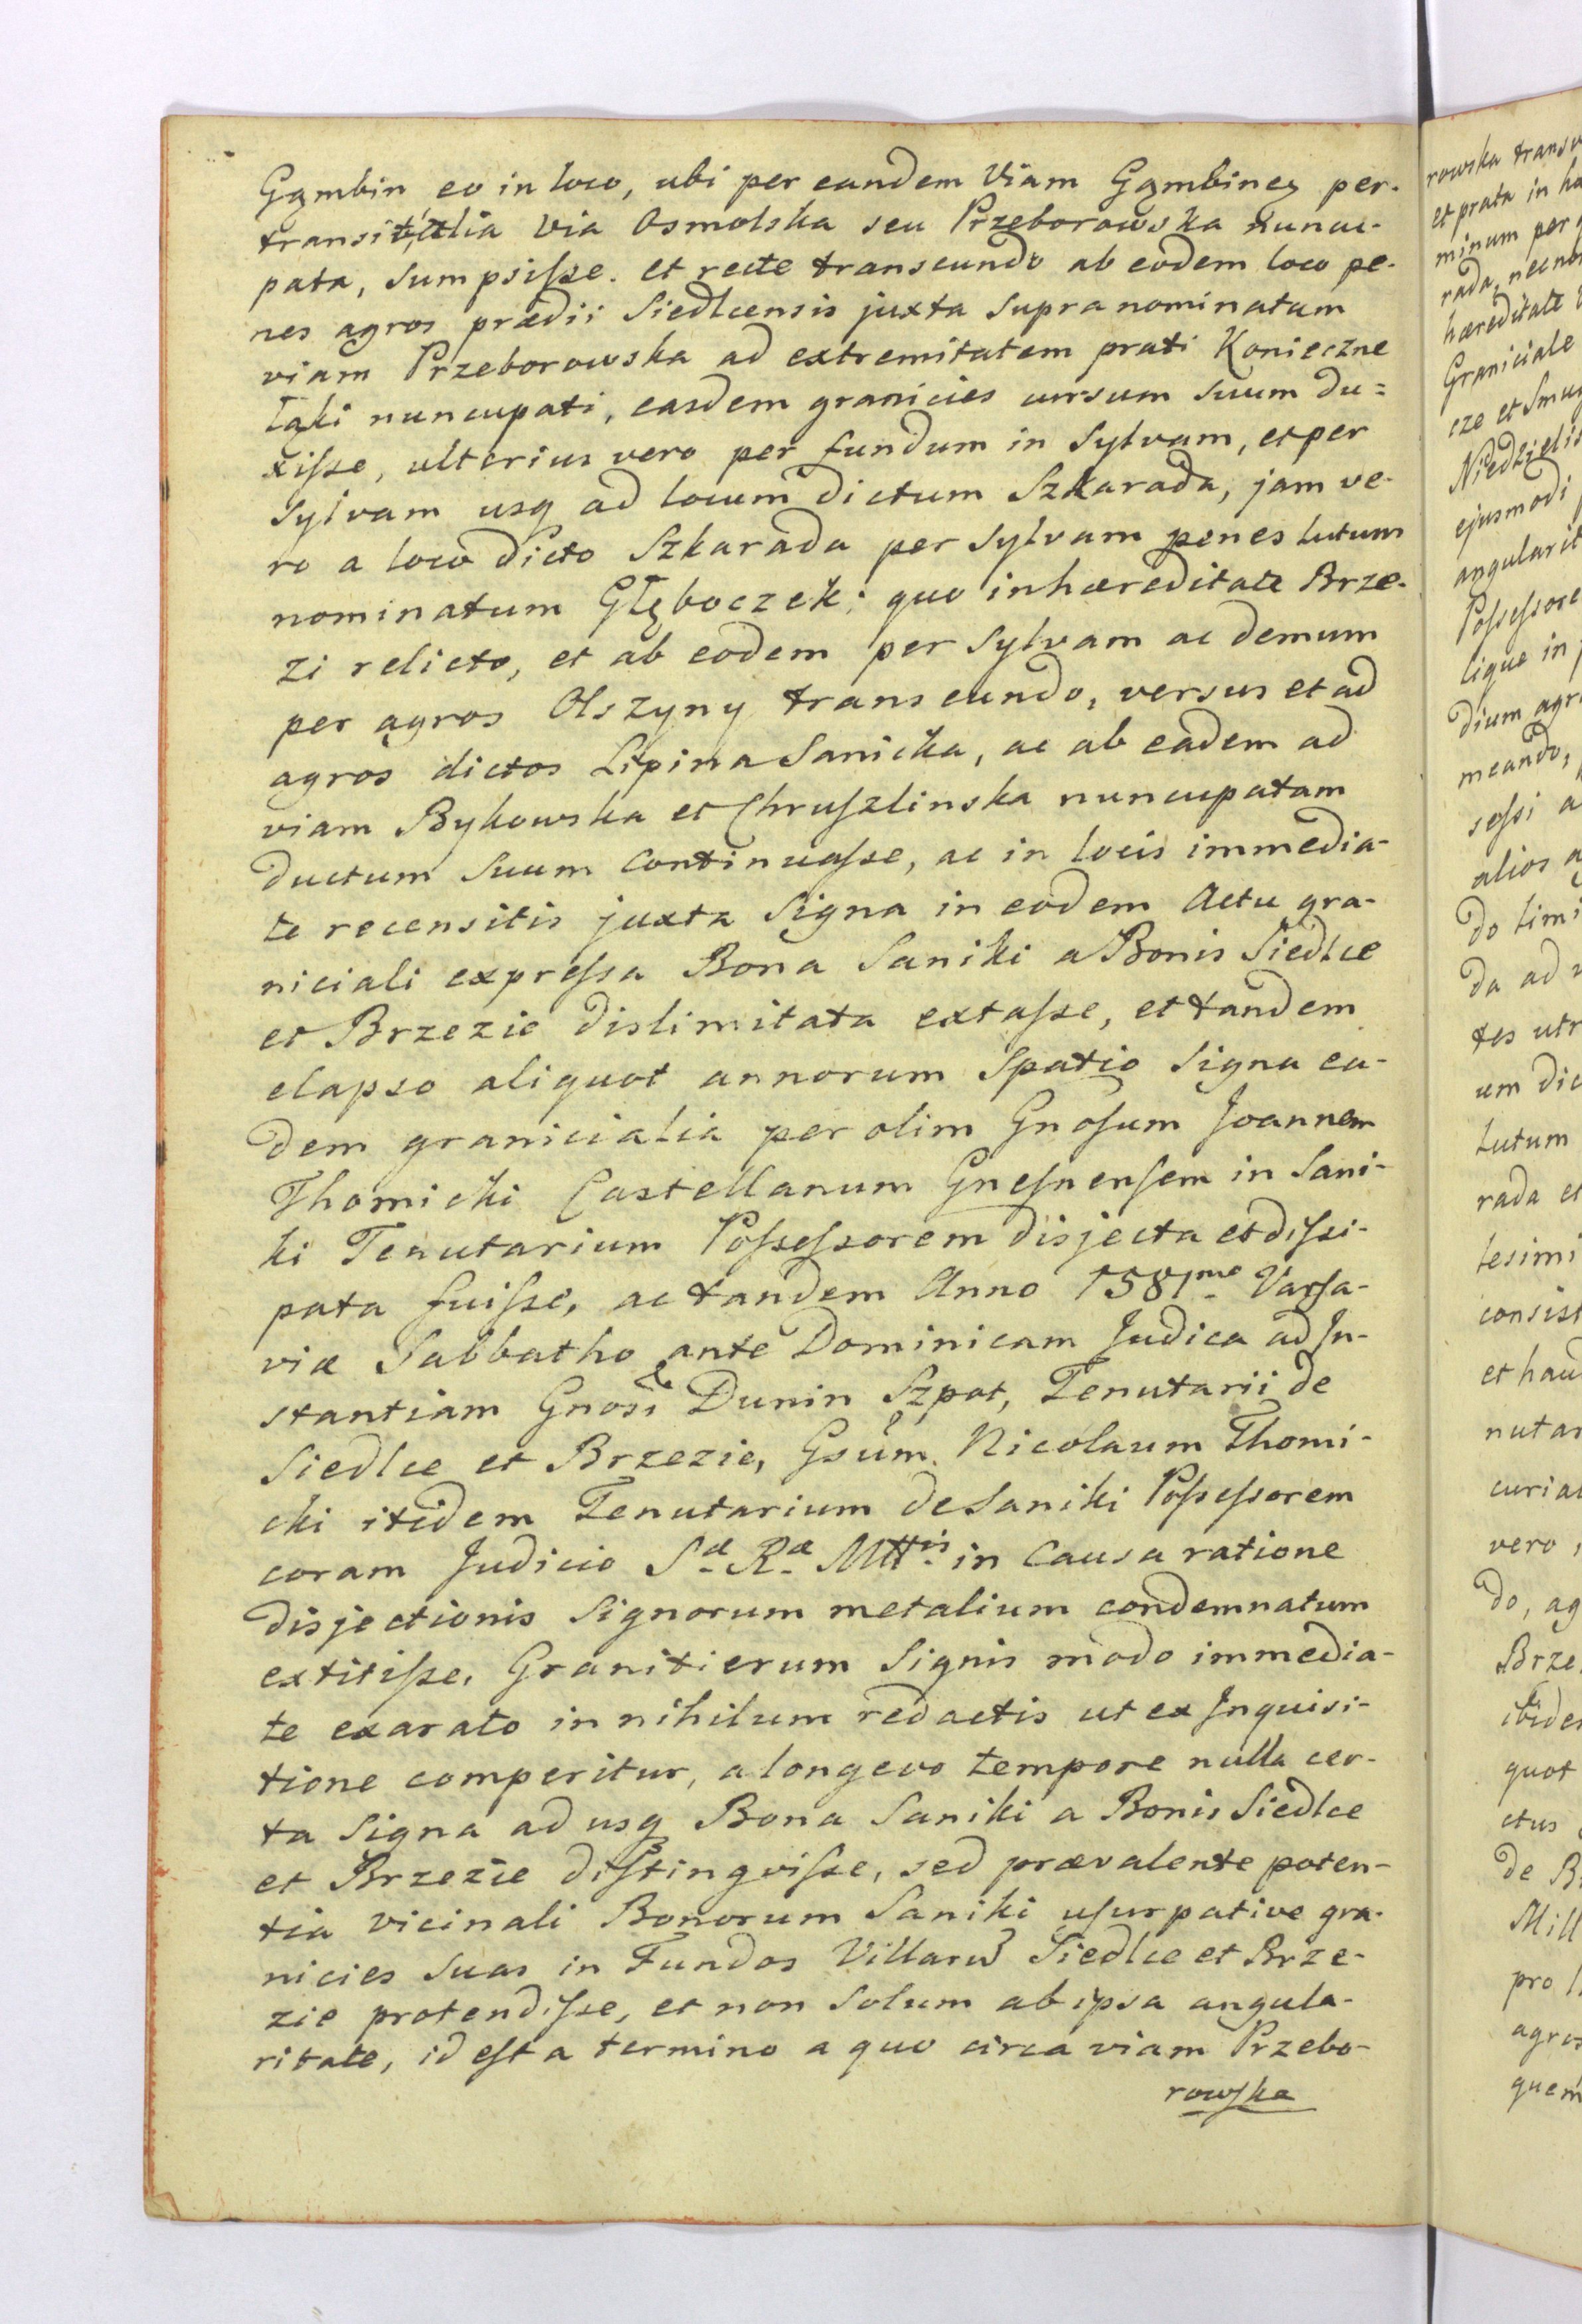 Gąmbin eo in loco, ubi per eandem Viam Gąmbinę per-
transit, alia via Osmolska seu Przeborowska nuncu-
pata, sumpsiſse. et recte transeundo ab eodem loco pe-
nes agros prædii Siedlcensis juxta supra nominatam
viam Przeborowska ad extremitatem prati Konieczne
Łąki nuncupati, easdem granicies cursum suum du=
xiſse, ulterius vero per fundum in Sylvam, et per
Sylvam usq ad locum dictum Szkarada, jam ve-
ro a loco dicto Szkarada per Sylvam penes lutum
nominatum Głęboczek; quo in hæreditate Brze-
zi relicto, et ab eodem per Sylvam ac demum
per agros Olszyny transeundo, versus et ad
agros dictos Lipina Sanicka, ac ab eadem ad
viam Bykowska et Chruſzlinska nuncupatam
ductum suum continuaſse, ac in locis immedia-
te recensitis juxta Signa in eodem Actu gra-
niciali expreſsa Bona Saniki a Bonis Siedlce
et Brzezie dislimitata extaſse, et tandem
elapso aliquot annorum Spatio Signa ea-
dem granicialia per olim Gnoſum Joannem
Thomicki Castellanum Gneſnenſem in Sani-
ki Tenutarium Poſseſsorem disjecta et diſsi-
pata fuiſse, ac tandem Anno 1581mo Varſa-
viæ Sabbatho ante Dominicam Judica ad In-
stantiam Gnosi Dunin Szpot, Tenutarii de
Siedlce et Brzezie, Gsum Nicolaum Thomi-
cki itidem Tenutarium de Saniki Poſseſsorem
coram Judicio Sæ Ræ Mttis in Causa ratione
disjectionis Signorum metalium condemnatum
extitiſse, Granitierum Signis modo immedia-
te exarato in nihilum redactis ut ex Inquisi-
tione comperitur, a longevo tempore nulla cer-
ta Signa ad usq Bona Saniki a Bonis Siedlce
et Brzezie diſtingviſse, sed prævalente poten-
tia vicinali Bonorum Saniki uſurpative gra-
nicies suas in Fundos Villarũ Siedlce et Brze-
zie protendiſse, et non solum ab ipsa angula-
ritate, id eſt a termino a quo circa viam Przebo-
rowſka
rowska
et prata in
minum per
rada, necnon
hæreditate
Graniciale
cze et
ejusmodi
Poſseſsore
lique in
dium
meando,
seſsi
alios
da ad
um
Lutum
rada et
lesimi
et
vero,
do,
quot
ctus
de
pro
quem